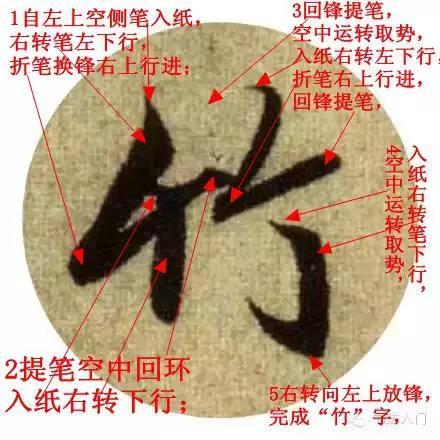 1自左上空侧笔入纸,
右转笔左下行,
折笔换锋右上行进;
3回锋提笔,
空中运转取势,
入纸右转左下行,
折笔右上行进,
回锋提笔,
竹
4空中运转取势,
入纸右转笔下行,
2提笔空中回环
入纸右转下行;
5右转向左上放锋,
完成“竹”字,